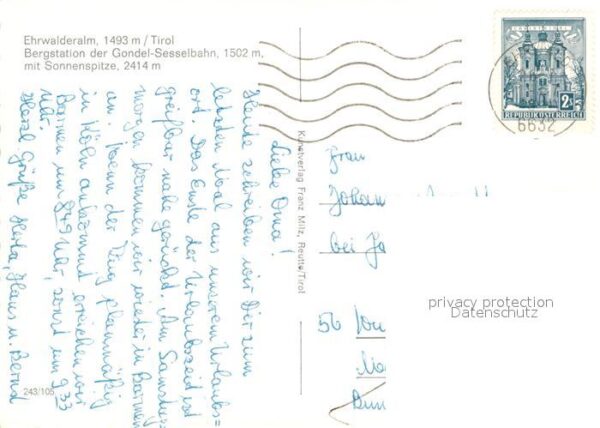 Ehrwalderalm, 1493 m / Tirol
Bergstation der Gondel-Sesselbahn, 1502 m,
mit Sonnenspitze, 2414 m
2
REPUBLIK ÖSTERREICH
6632
Liebe Oma!
Heute schreiben wir Dir zum
letzten Mal aus unserem Urlaubs=
ort. Das Ende der Urlaubszeit ist
greifbar nahe gerückt. Am Samstag
morgen kommen wir wieder in Barmen
an. Wenn der Zug planmäßig
in Köln ankommt erreichen wir
Barmen um 8⁴⁹ Uhr, sonst um 9³³
Uhr.
Herzl. Grüße Herta, Hans u. Bernd
Kunstverlag Franz Milz, Reutte/Tirol
Frau
Johan
bei Jo
56 Wu
243/105
privacy protection
Datenschutz